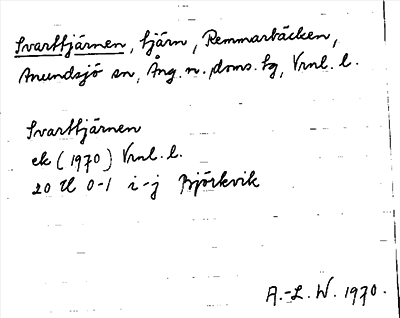 Svarttjärnen, tjärn, Remmarbäcken,
Anundsjö sn, Ång. n. doms. tg, Vrnl. l.
Svarttjärnen
ek (1970) Vrnl. l.
20 H 0-1 i-j Björkvik
A.-L. W. 1970.